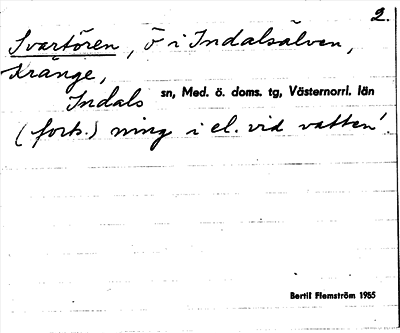 2.
Svartören, ö i Indalsälven,
Kränge,
Indals sn, Med. ö. doms. tg, Västernorrl. län
(forts.) ning i el. vid vatten'.
Bertil Flemström 1965